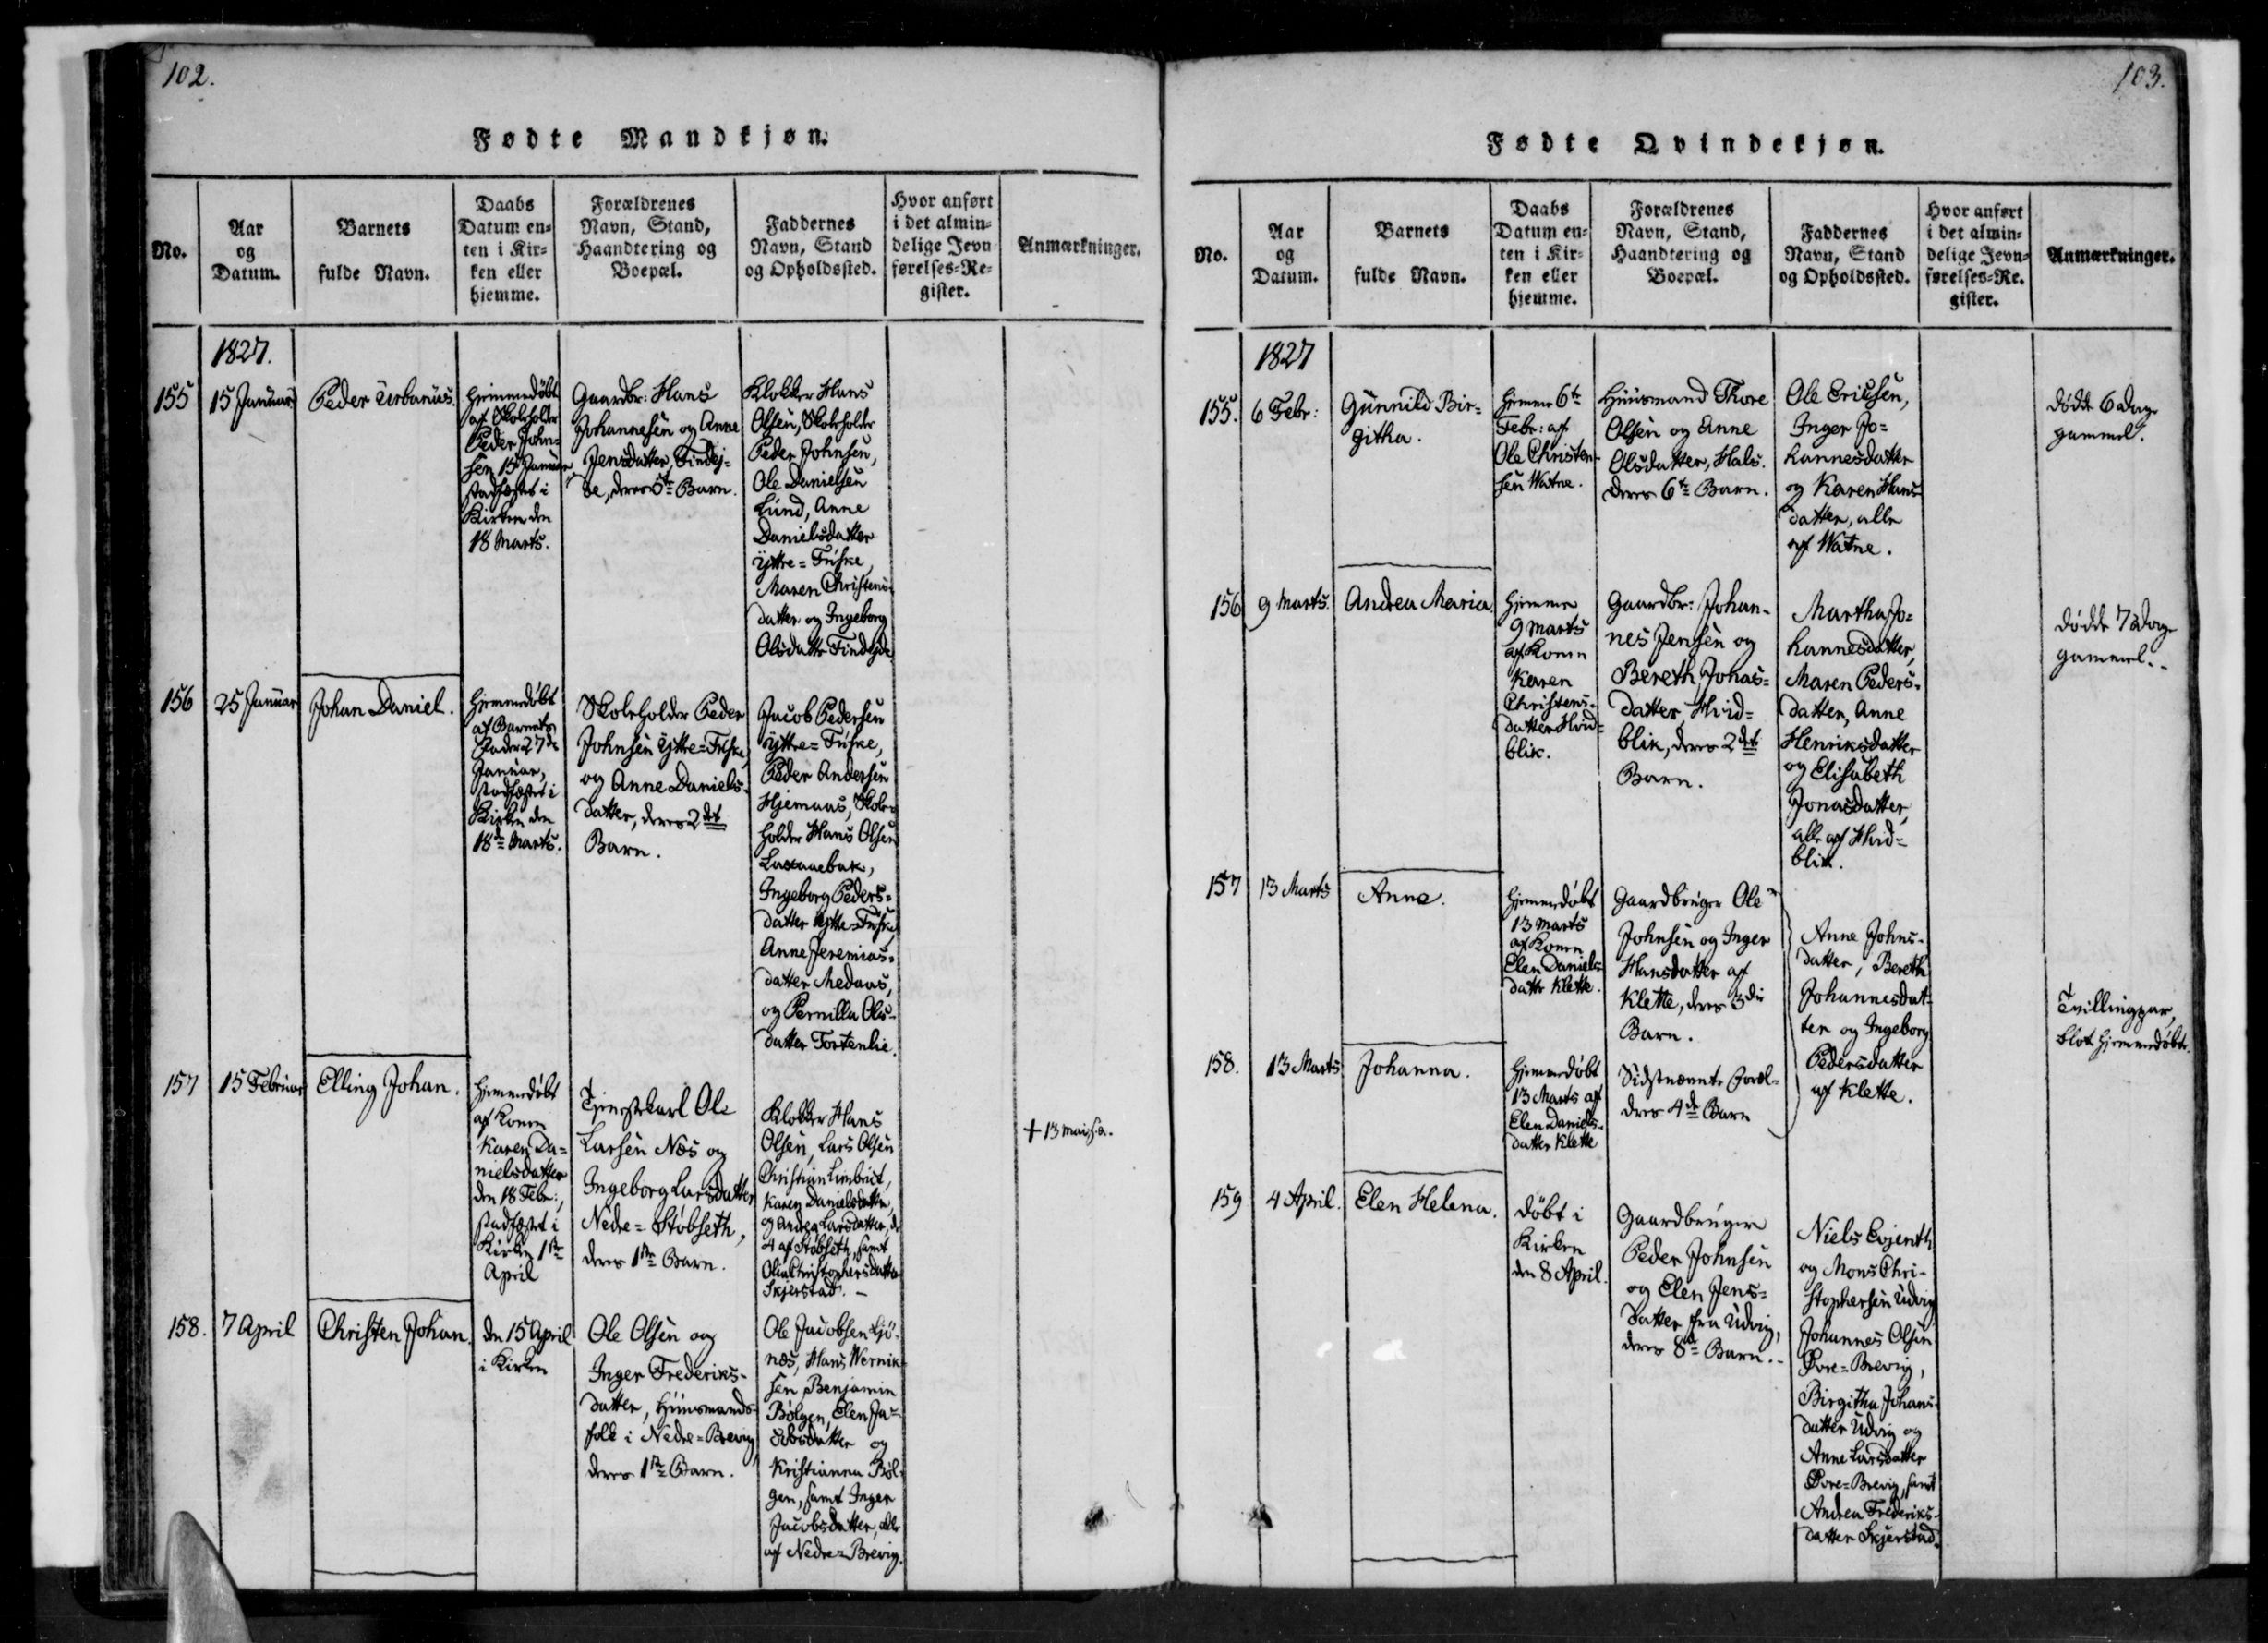 102.
Fødte Mandkjøn.
No.
Aar
og
Datum.
Barnets
fulde Navn.
Daabs
Datum en-
ten i Kir-
ken eller
hjemme.
Forældrenes
Navn, Stand,
Haandtering og
Boepæl.
Faddernes
Navn, Stand
og Opholdssted.
Hvor anført
i det almin-
delige Jevn
førelses-Re-
gister.
Anmærkninger.
1827.
155
15 Januar
Peder Urbanus.
Hjemmedøbt
af Skoleholder
Peder John-
sen 15 Januar
stadfæstet i
Kirken den
18 Marts.
Gaardbr: Hans
Johannesen og Anne
Jensdatter, Findej-
de, deres 5te Barn.
Klokker Hans
Olsen, Skoleholder
Peder Johnsen,
Ole Danielsen
Lund, Anne
Danielsdatter
Yttre=Fuske,
Maren Christens-
datter og Ingeborg
Olsdatter Findejde.
156
25 Januar
Johan Daniel.
Hjemmedøbt
af Barnets
Fader 27de
Januar,
stadfæstet i
Kirken den
18de Marts.
Skoleholder Peder
Johnsen Yttre=Fuske,
og Anne Daniels-
datter, deres 2det
Barn.
Jacob Pedersen
Yttre=Fuske,
Peder Andersen
Hjemaas, Skole-
holder Hans Olsen
Ingeborg Peders=
datter Yttre=Fuske,
Anne Jeremias=
datter Medaas,
og Pernilla Ols-
datter Tortenlie.
157
15 Februar
Elling Johan.
Hjemmedøbt
af Konen
Karen Da=
nielsdatter
den 18 Febr:,
stadfæstet i
Kirken 1ste
April
Tjenestekarl Ole
Larsen Næs og
Ingeborg Larsdatter
Nedre=Støbseth,
deres 1ste Barn.
Klokker Hans
Olsen, Lars Olsen
Christian Limbrist,
Karen Danielsdatter,
og Andrea Larsdatter, de
4 af Støbseth, samt
Olia Christophersdatter
Skjerstad. -
+ 13 mai s.a.
158.
7 April
Christen Johan.
den 15 April
i Kirken
Ole Olsen og
Inger Frederiks-
datter, Huusmands-
folk i Nedre=Brevig
deres 1ste Barn.
Ole Jacobsen Ljø-
næs, Hans Wernik-
sen, Benjamin
Bølgen, Elen Ja-
cobsdatter og
Kristianna Bøl-
gen, samt Inger
Jacobsdatter, alle
af Nedre=Brevig.
103.
Fødte Qvindekjøn.
No.
Aar
og
Datum.
Barnets
fulde Navn.
Daabs
Datum en-
ten i Kir-
ken eller
hjemme.
Forældrenes
Navn, Stand,
Haandtering og
Boepæl.
Faddernes
Navn, Stand
og Opholdssted.
Hvor anført
i det almin-
delige Jevn-
førelses-Re-
gister.
Anmærkninger.
1827
155.
6 Febr:
Gunnild Bir=
githa.
hjemme 6te
Febr: af
Ole Christen-
sen Watne.
Huusmand Thore
Olsen og Anne
Olsdatter, Hals.
deres 6te Barn.
Ole Ericksen,
Inger Jo=
hannesdatter
og Karen Hans
datter, alle
af Watne.
døde 6 dage
gammel.
156
9 Marts.
Andrea Maria
hjemme
9 Marts
af Konen
Karen
Christens-
datter Hvid=
blik.
Gaardbr: Johan-
nes Jensen og
Bereth Johas=
datter Hvid=
blik, deres 2det
Barn.
Martha Jo=
hannesdatter,
Maren Peders-
datter, Anne
Henriksdatter
og Elisabeth
Jonasdatter,
alle af Hvid=
blik.
døde 7 dage
gammel. -
157
13 Marts
Anne.
Hjemmedøbt
13 Marts
af Konen
Elen Daniels-
datter Klette.
Gaardbruger Ole
Johnsen og Inger
Hansdatter af
Klette, deres 3die
Barn.
Anne Johns-
datter, Bereth
Johannesdat-
ter og Ingeborg
Pedersdatter
af Klette.
Tvillingpar,
blot hjemmedøbte.
158.
13 Marts
Johanna.
Hjemmedøbt
13 Marts af
Elen Daniels-
datter Klette
Sidstnævnte Foræl-
dres 4de Barn
159
4 April.
Elen Helena.
døbt i
Kirken
den 8 April.
Gaardbruger
Peder Johnsen
og Elen Jens=
datter fra Udvig,
deres 8de Barn. -
Niels Evjenth
og Mons Chri-
stophersen Udvig
Johannes Olsen
Øvre=Brevig,
Birgitha Johans-
datter Udvig og
Anne Larsdatter
Øvre=Brevig, samt
Andrea Frederiks-
datter Skjerstad.